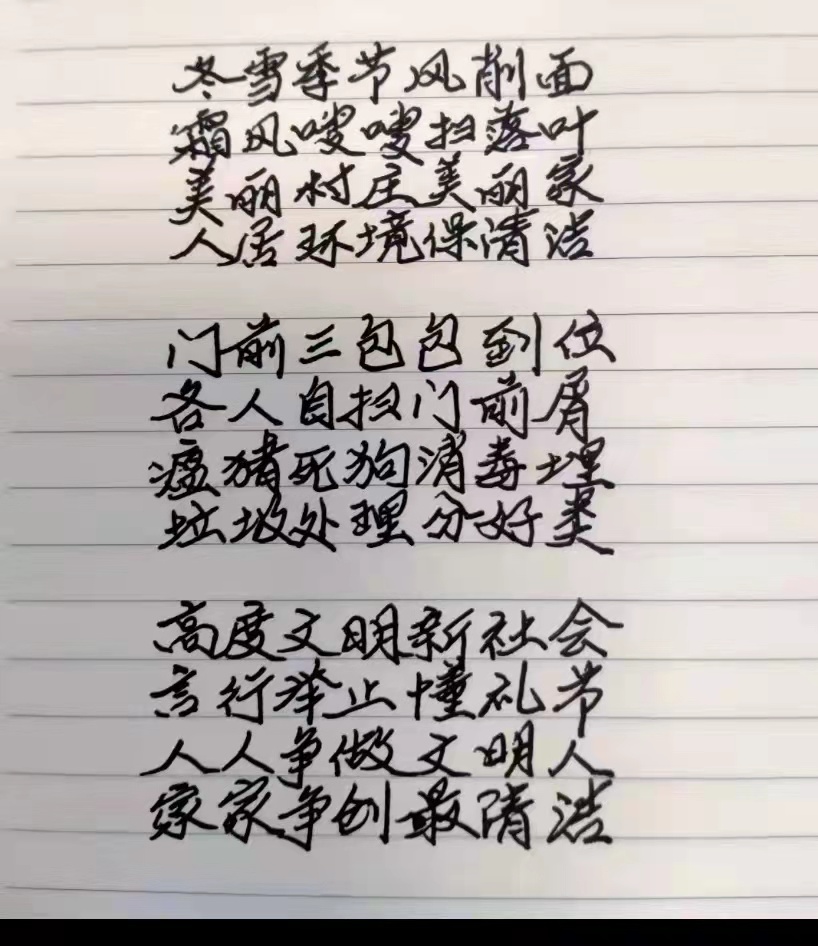 冬雪季节风削面
霜风嗖嗖扫落叶
美丽村庄美丽家
人居环境保清洁
门前三包包到位
各人自扫门前屑
瘟猪死狗消毒埋
垃圾处理分好类
高度文明新社会
言行举止懂礼节
人人争做文明人
家家争创最清洁